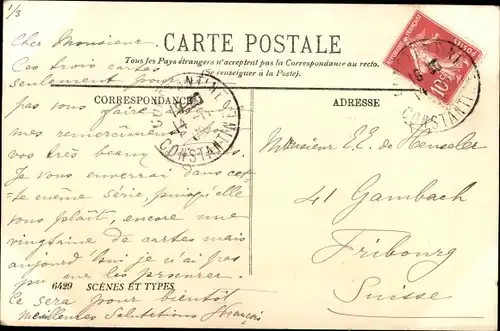 1/3
Cher Monsieur.
CARTE POSTALE
Ces trois cartes
Tous les Pays étrangers n'acceptent pas la Correspondance au recto.
(Se renseigner à la Poste).
seulement pour
CORRESPONDANCE
pas vous faire
mes remerciements
vos très beaux
Je vous enverrai dans cet-
te même série, puisqu'elle
vous plaît, encore une
vingtaine de cartes mais
aujourd'hui je n'ai pas
pu me les procurer.
6429 SCÈNES ET TYPES
Ce sera pour bientôt
Meilleures Salutations François
ADRESSE
Monsieur E.E. de Henseler
41 Gambach
Fribourg
Suisse
POSTES
10c
CONSTANTINE
CONSTANTINE